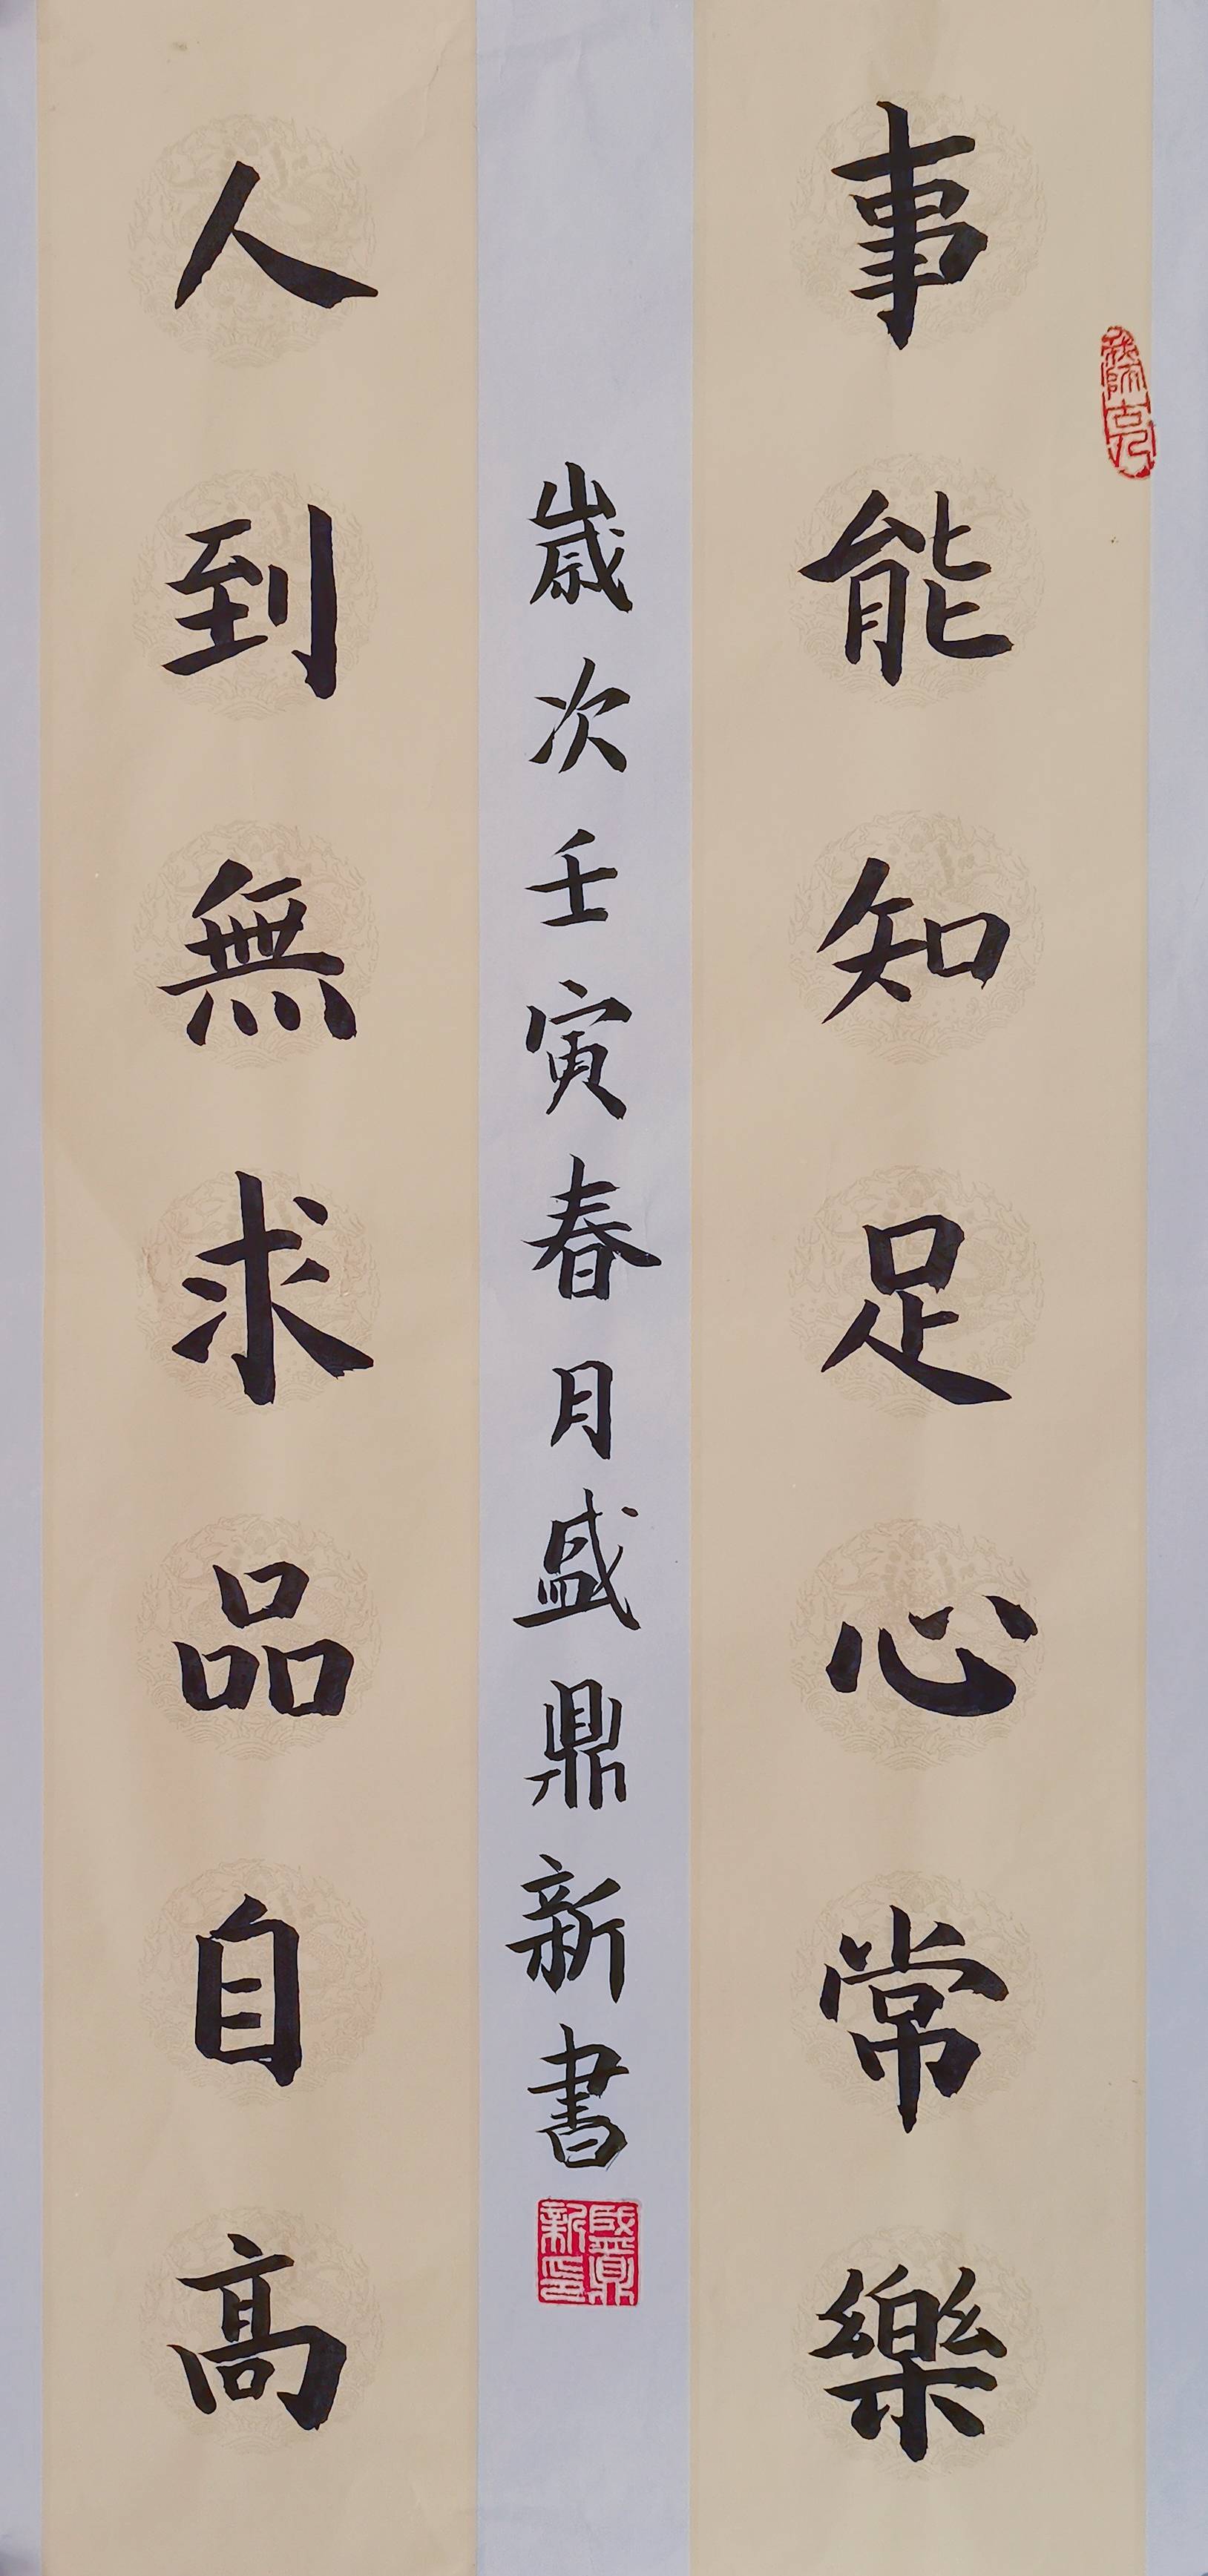 事能知足心常樂
人到無求品自高
歲次壬寅春月盛鼎新書
我師古人
盛鼎新印